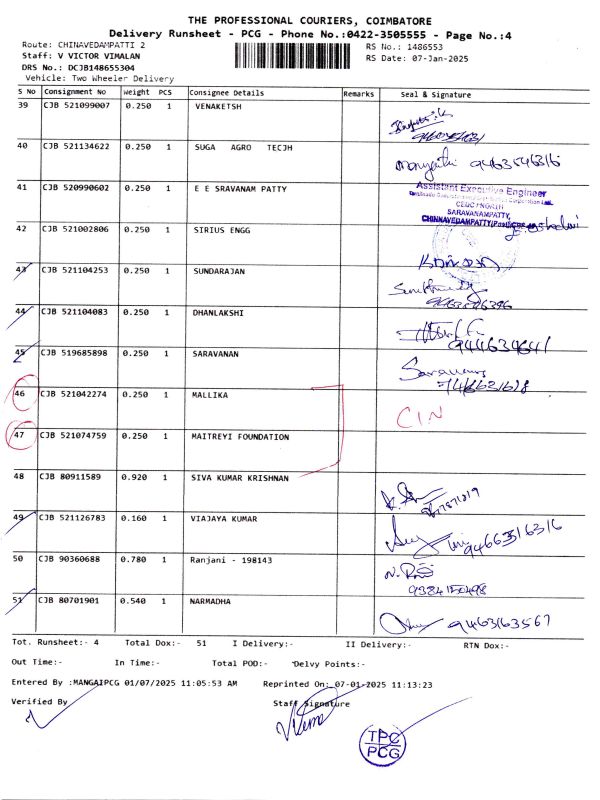 THE PROFESSIONAL COURIERS, COIMBATORE
Delivery Runsheet - PCG - Phone No.:0422-3505555 - Page No.:4
Route: CHINAVEDAMPATTI 2 RS No.: 1486553
Staff: V VICTOR VIMALAN RS Date: 07-Jan-2025
DRS No.: DCJB148655304
Vehicle: Two Wheeler Delivery
S No Consignment No Weight PCS Consignee Details Remarks Seal & Signature
39 CJB 521099007 0.250 1 VENAKETSH
40 CJB 521134622 0.250 1 SUGA AGRO TECJH 9463546316
41 CJB 520990602 0.250 1 E E SRAVANAM PATTY
Assistant Executive Engineer
SARAVANAMPATTY,
42 CJB 521002806 0.250 1 SIRIUS ENGG
43 CJB 521104253 0.250 1 SUNDARAJAN
44 CJB 521104083 0.250 1 DHANLAKSHI
45 CJB 519685898 0.250 1 SARAVANAN
46 CJB 521042274 0.250 1 MALLIKA
CIN
47 CJB 521074759 0.250 1 MAITREYI FOUNDATION
48 CJB 80911589 0.920 1 SIVA KUMAR KRISHNAN
49 CJB 521126783 0.160 1 VIAJAYA KUMAR
50 CJB 90360688 0.780 1 Ranjani - 198143
51 CJB 80701901 0.540 1 NARMADHA 9463163567
Tot. Runsheet:- 4 Total Dox:- 51 I Delivery:- II Delivery:- RTN Dox:-
Out Time:- In Time:- Total POD:- Delvy Points:-
Entered By :MANGAIPCG 01/07/2025 11:05:53 AM Reprinted On: 07-01-2025 11:13:23
Verified By Staff Signature
TPC
PCG